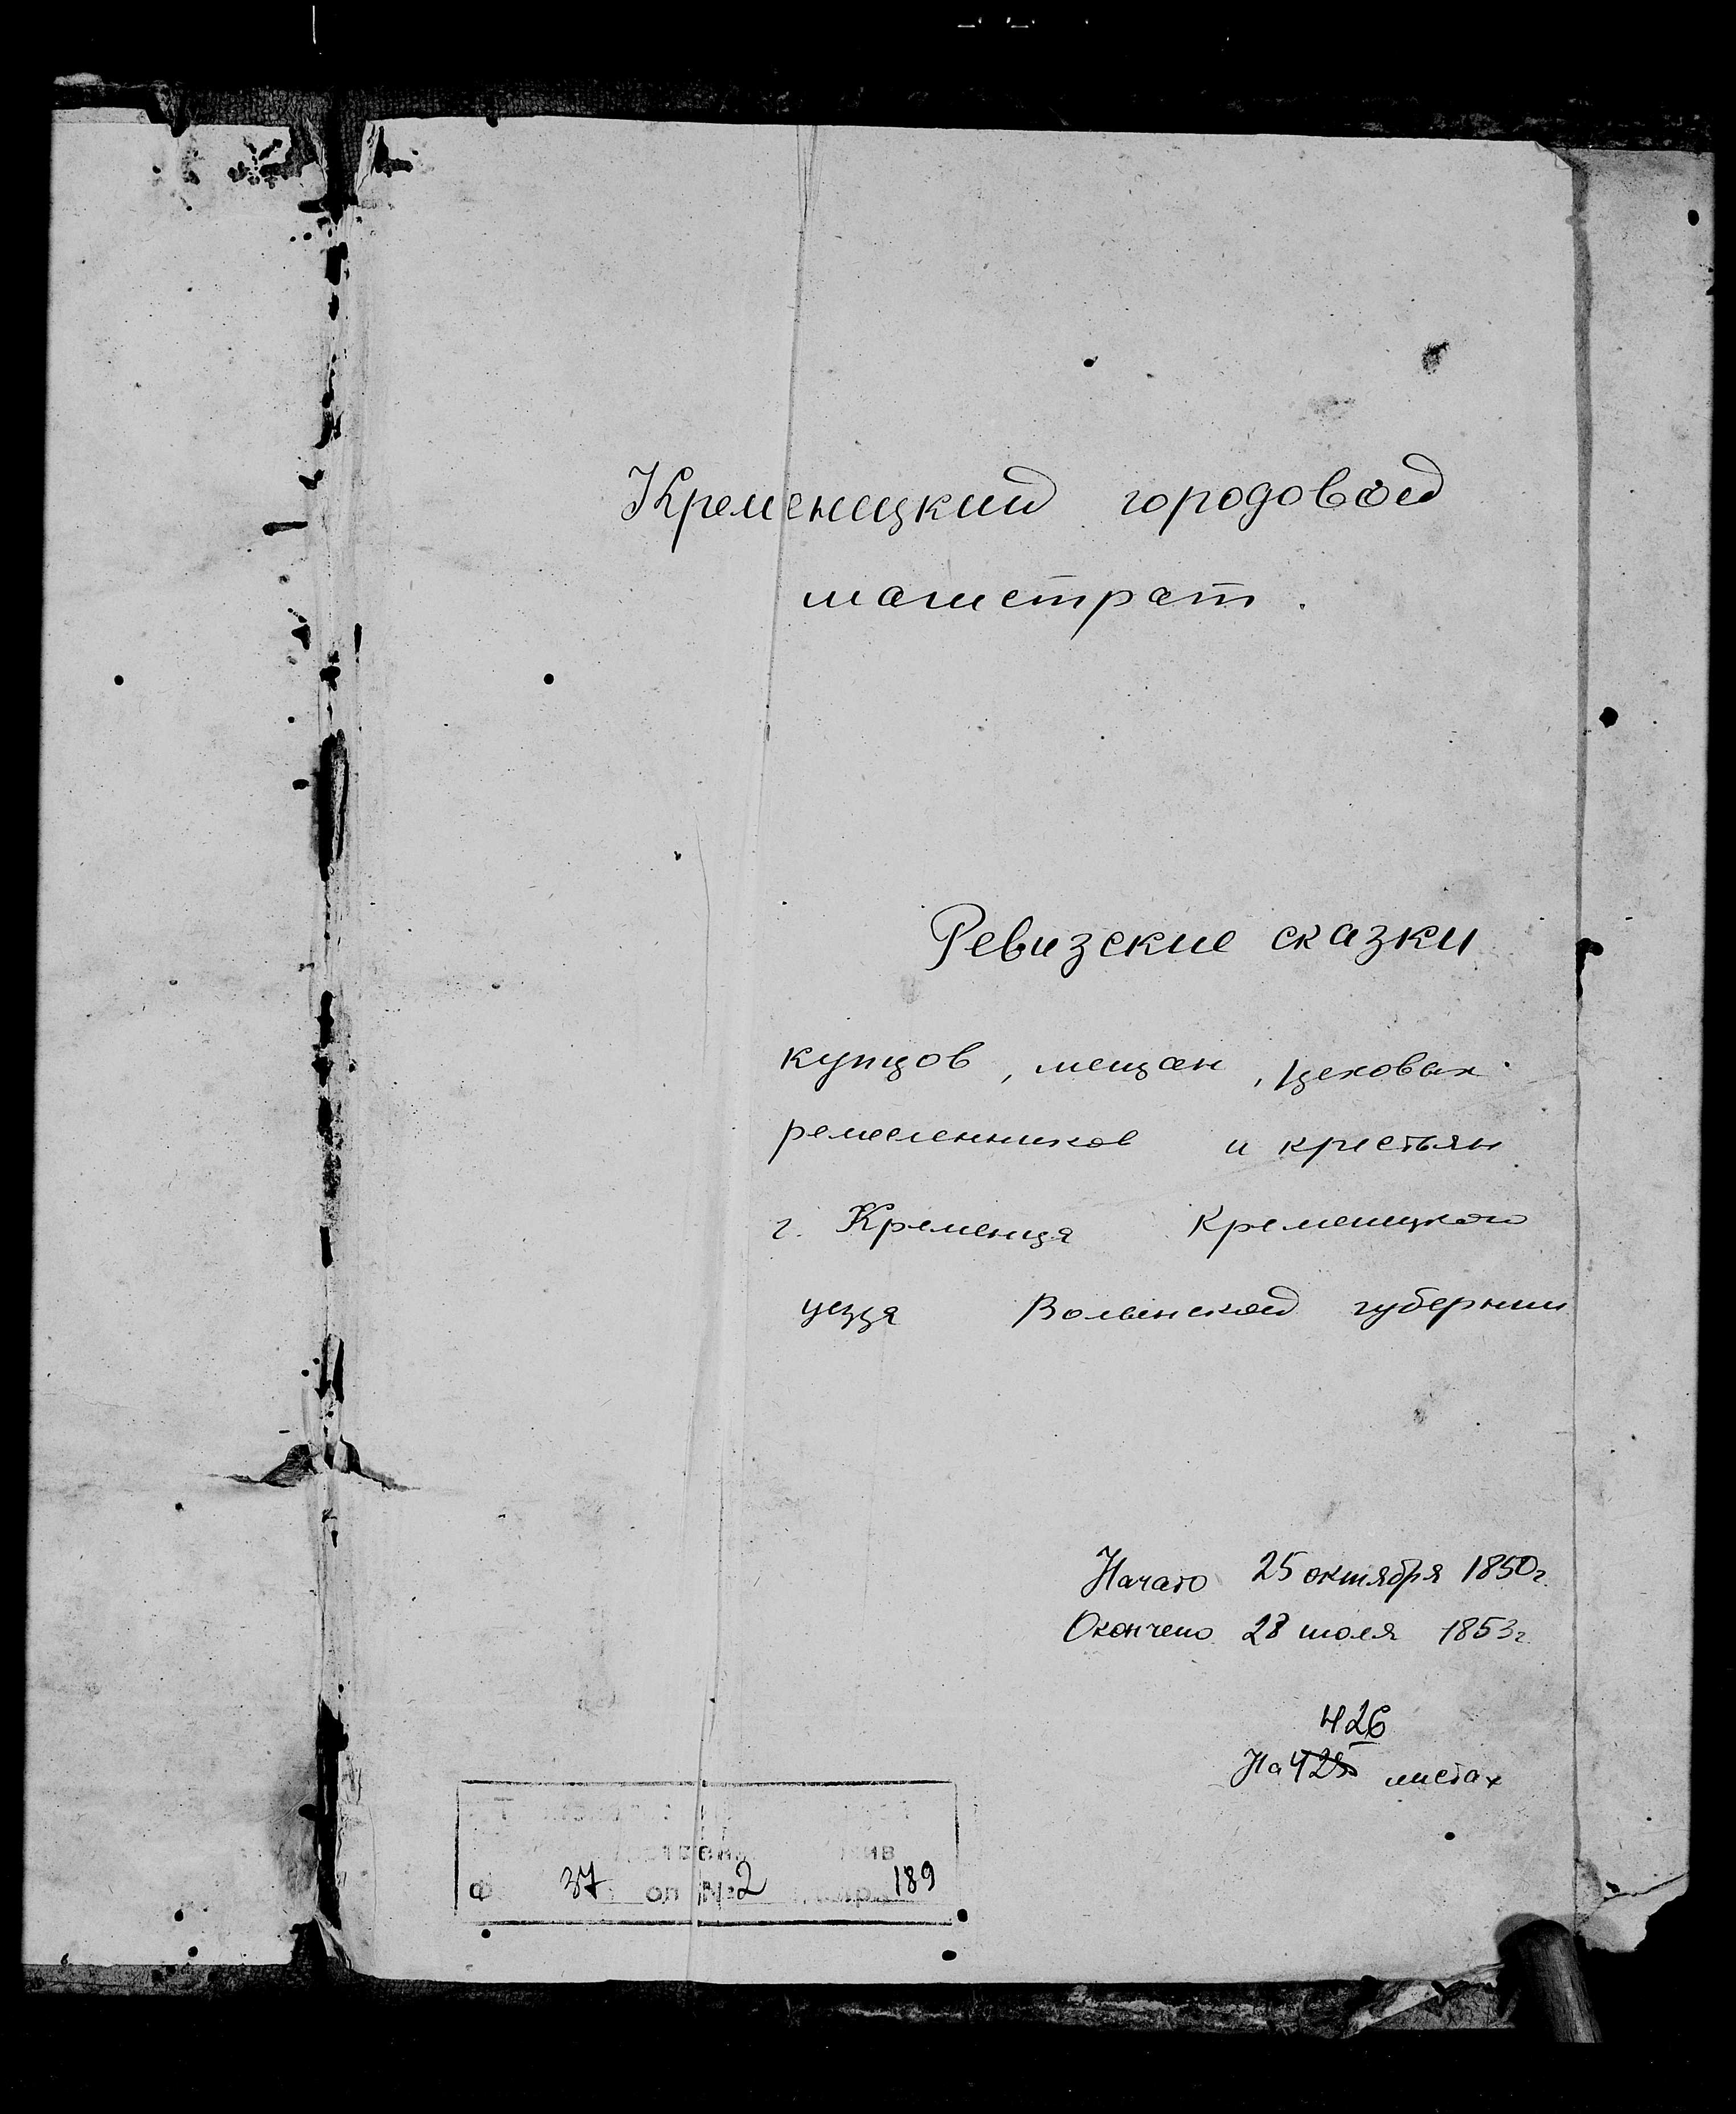 Кременецкий городовой
магистрат.
Ревизские сказки
купцов, мещан, цеховых
ремесленников и крестьян
г. Кременца Кременецкого
уезда Волынской губернии
Начато 25 октября 1850 г.
Окончено 28 июля 1853 г.
426
На 425 листах
Ф 37 оп №2 189